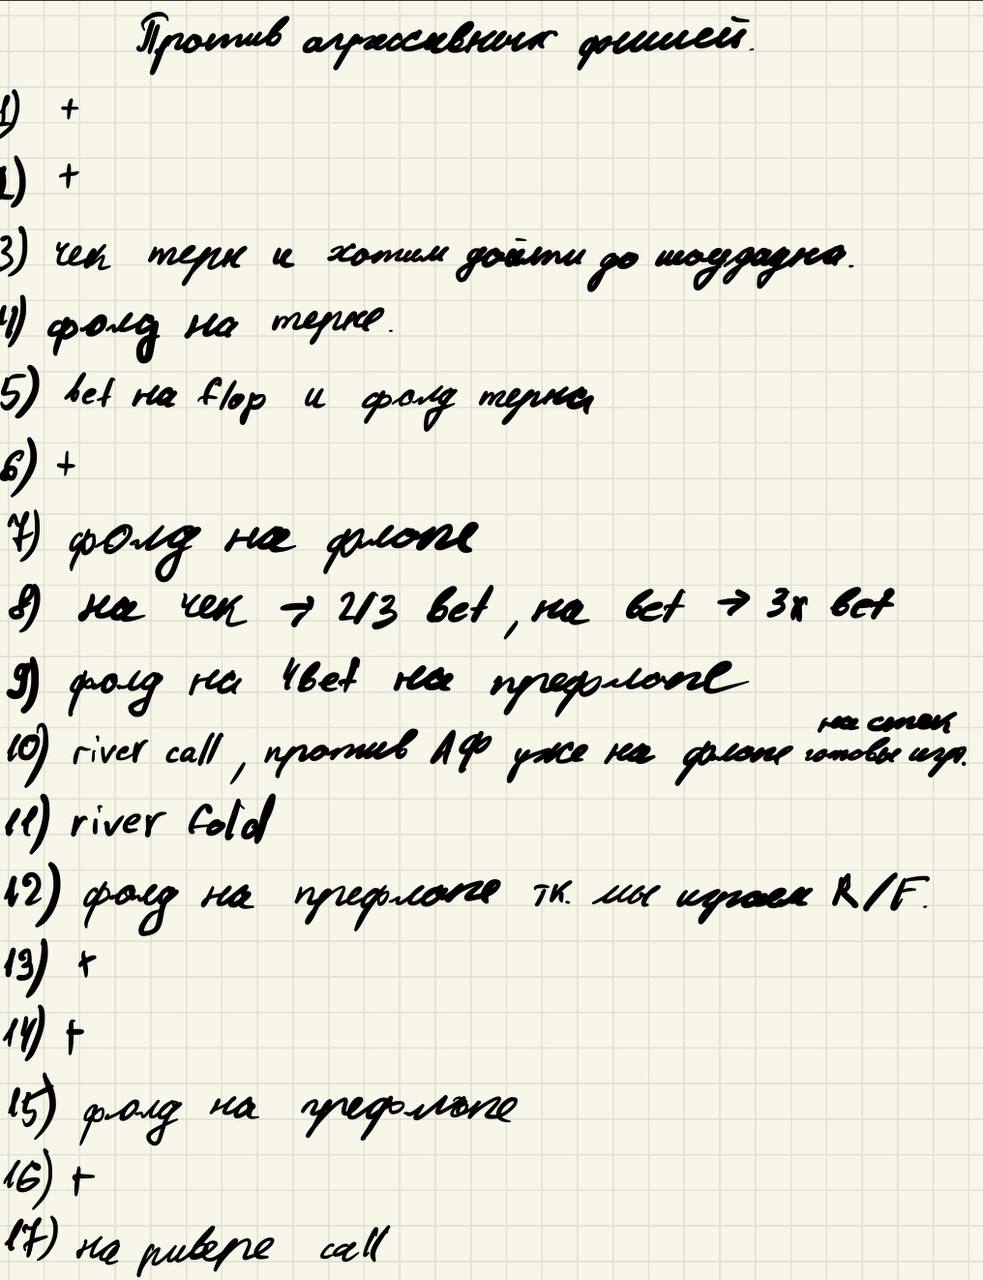 Против агрессивных фишей.
1) +
2) +
3) чек терн и хотим дойти до шоудауна.
4) фолд на терне.
5) bet на flop и фолд терна
6) +
7) фолд на флопе
8) на чек → 2/3 bet, на bet → 3x bet
9) фолд на 4bet на префлопе
на стек
10) river call, против АФ уже на флопе готовы игр.
11) river fold
12) фолд на префлопе тк. мы играем R/F.
13) +
14) +
15) фолд на префлопе
16) +
17) на ривере call